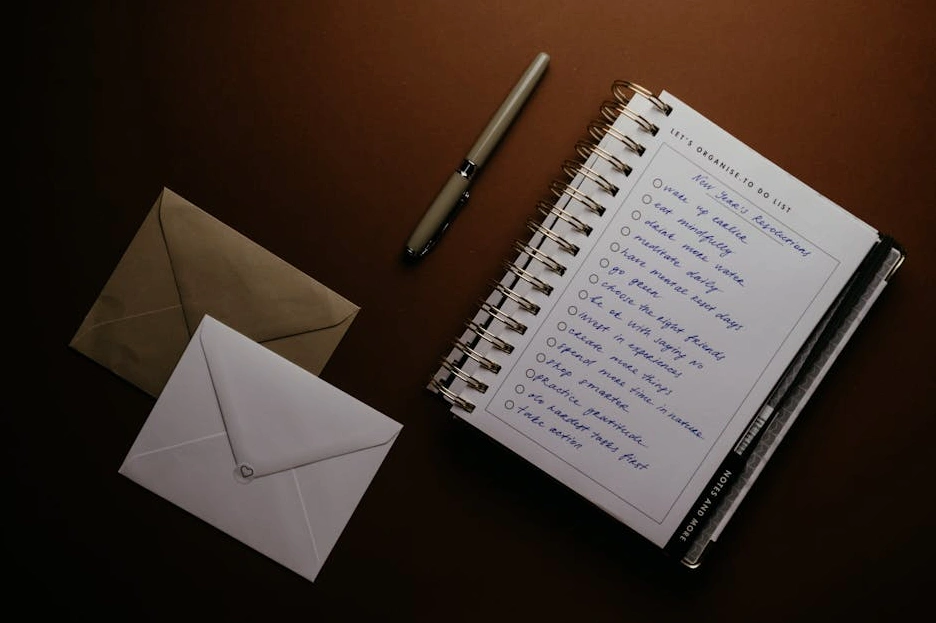 LET'S ORGANISE-TO DO LIST
New Year's Resolutions
wake up earlier
eat mindfully
drink more water
meditate daily
have mental reset days
go green
choose the right friends
be ok with saying no
invest in experiences
create more things
spend more time in nature
shop smarter
practice gratitude
do hardest tasks first
take action
NOTES AND MORE